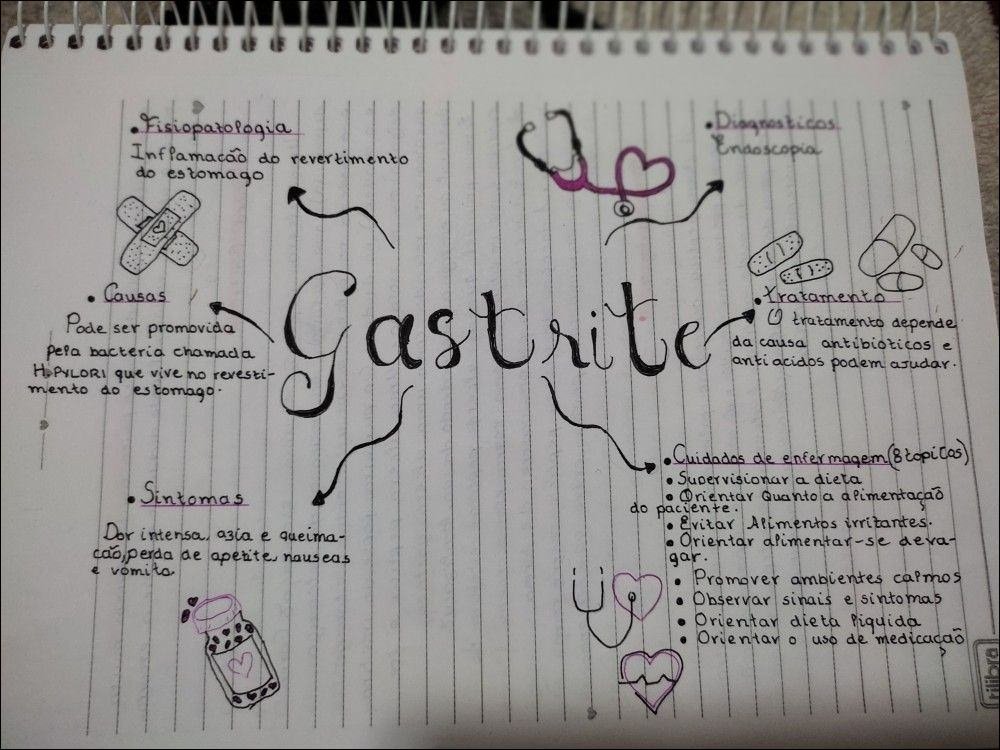 • Fisiopatologia
Inflamação do revertimento
do estomago
• Diagnosticos
Endoscopia
• Causas
Pode ser promovida
pela bacteria chamada
H.PYLORI que vive no revesti-
mento do estomago.
Gastrite
• Tratamento
O tratamento depende
da causa antibióticos e
antiacidos podem ajudar.
• Sintomas
Dor intensa, azia e queima-
cão, perda de apetite, nauseas
e vomito.
• Cuidados de enfermagem (8 topicos)
• Supervisionar a dieta
• Orientar Quanto a alimentação
do paciente.
• Evitar Alimentos irritantes.
• Orientar alimentar-se deva-
gar.
• Promover ambientes calmos
• Observar sinais e sintomas
• Orientar dieta liquida
• Orientar o uso de medicação
tilibra